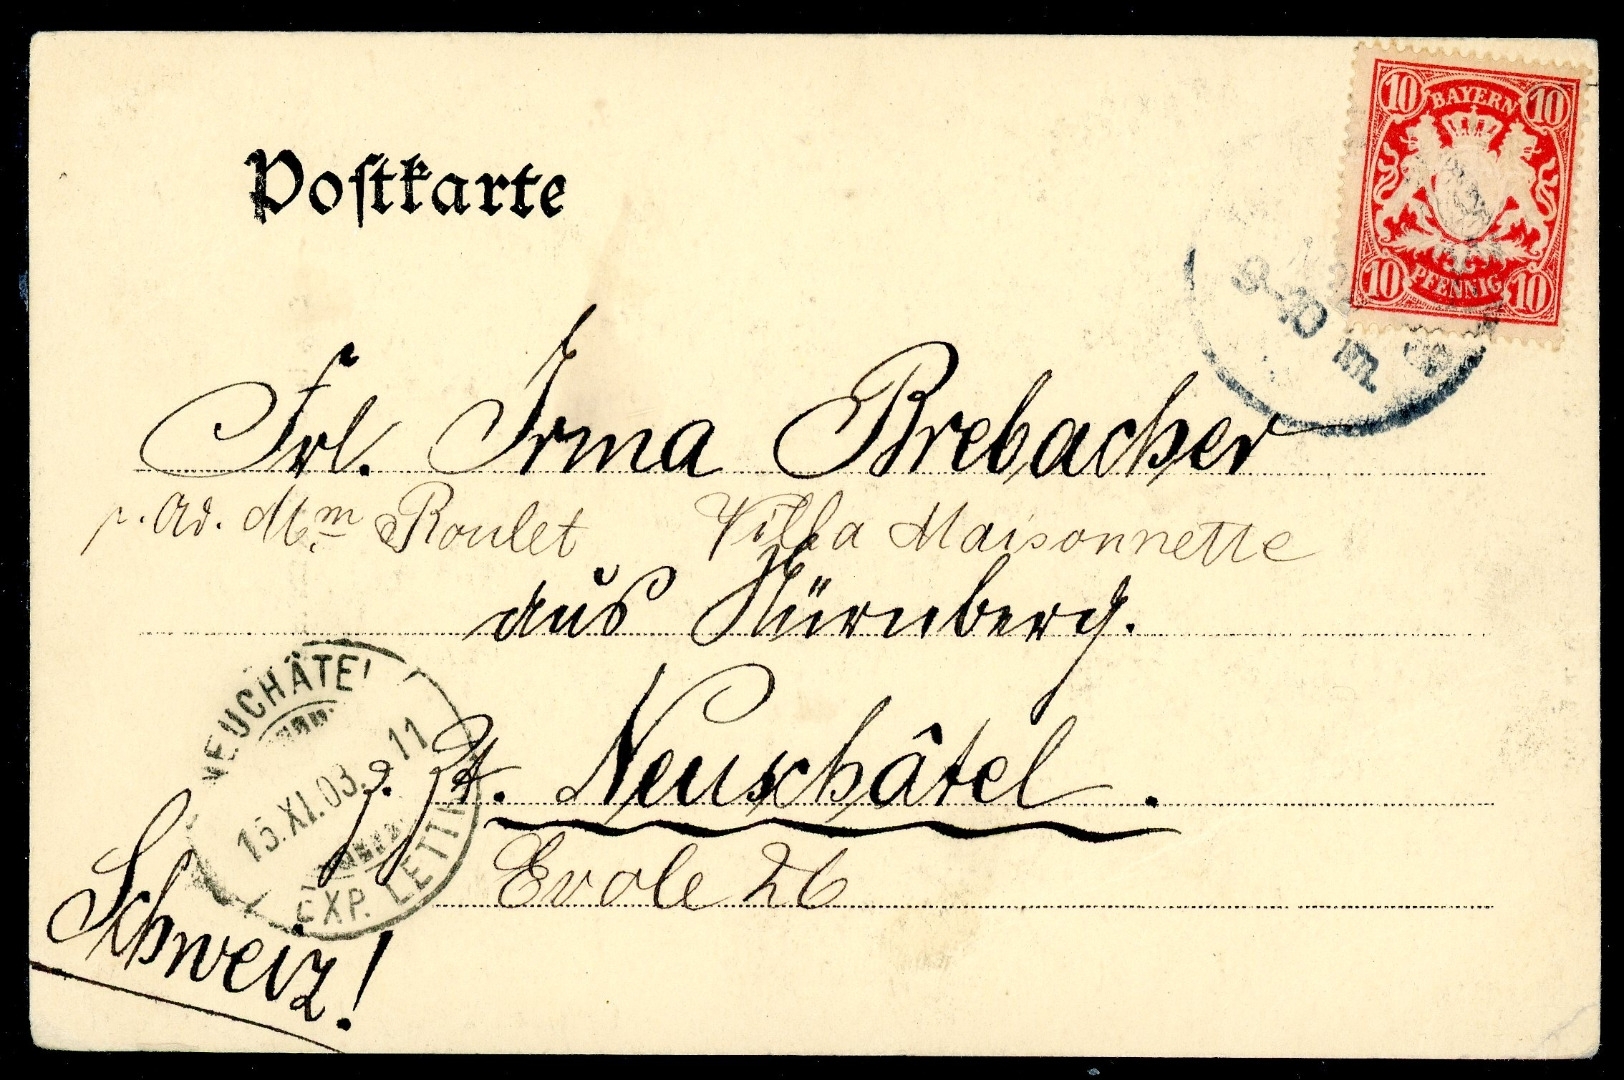 10 BAYERN 10
10 PFENNIG 10
Postkarte
Frl. Irma Brebacher
p. Ad. Mm Roulet Villa Maisonnette
aus Nürnberg.
z. Zt. Neuschâtel.
Evole 26
Schweiz!
NEUCHÂTEL
15.XI.03. 11
EXP. LETT.